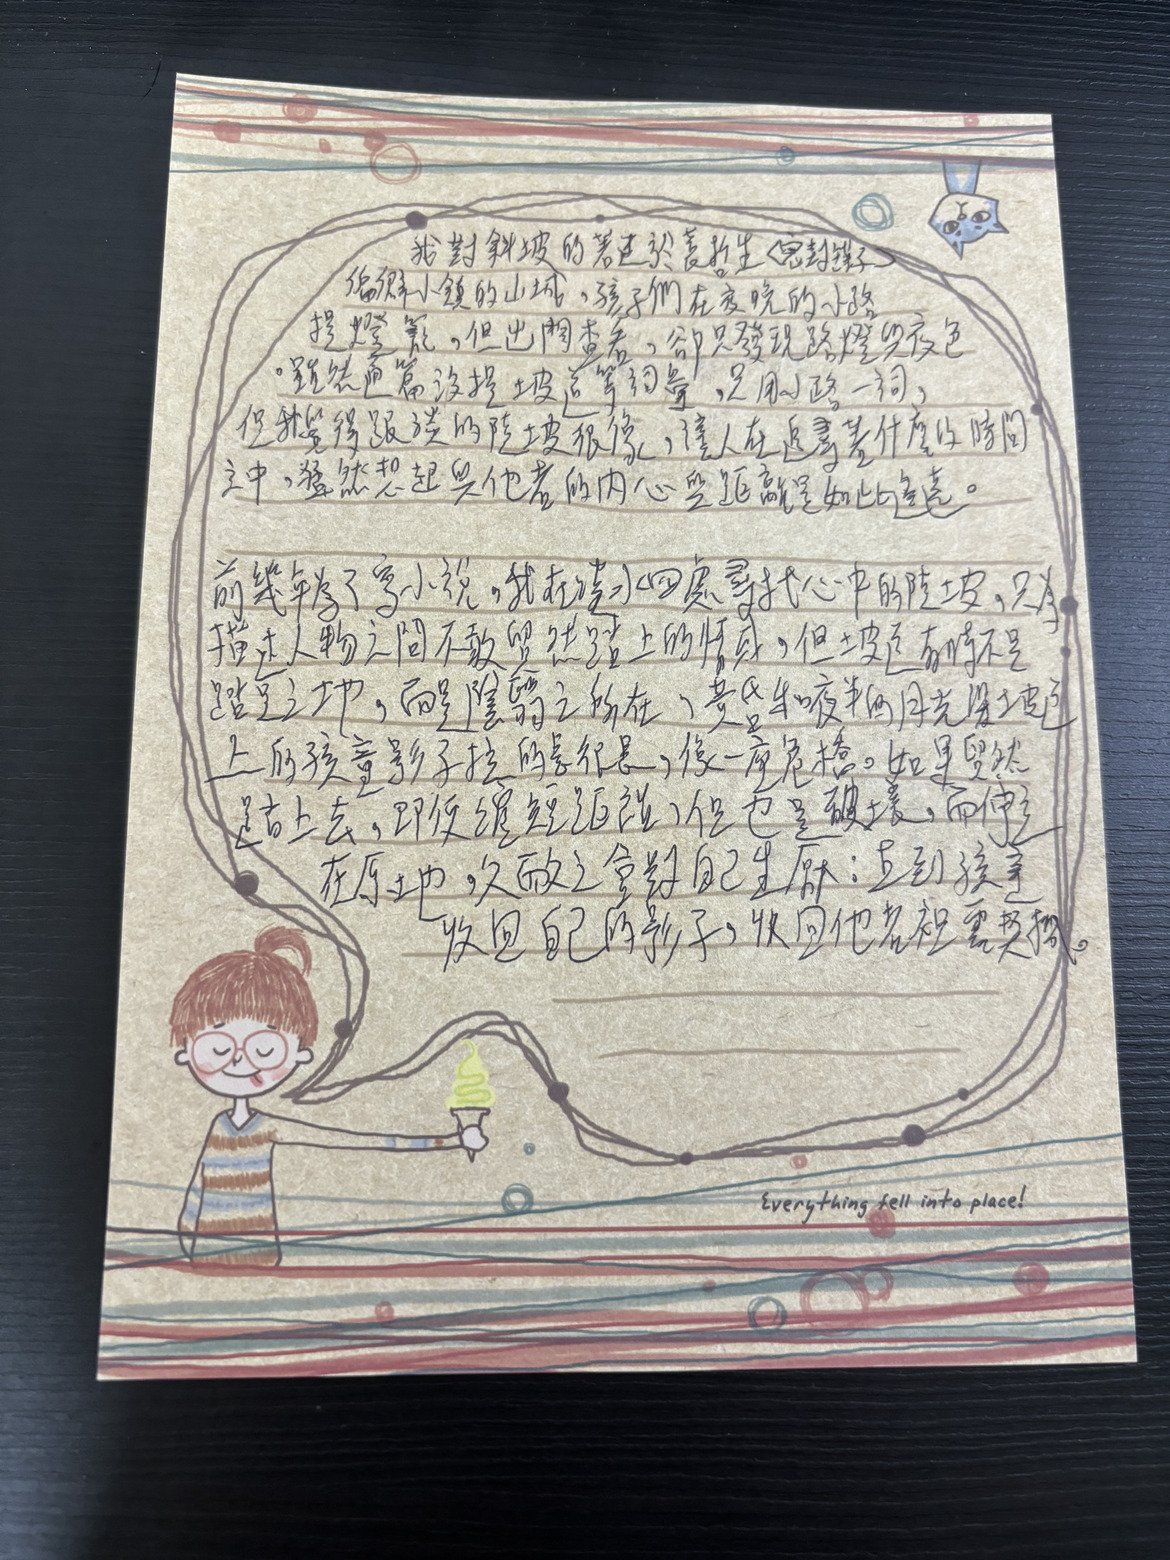 我對斜坡的著迷於袁哲生〈密封罐子〉
偏僻小鎮的山城，孩子們在夜晚的小路
提燈籠，但出門查看，卻只發現路燈與夜色
。雖然通篇沒提坡道等詞彙，只用小路一詞，
但我覺得跟淡的陡坡很像，讓人在追尋著什麼的時間
之中，猛然想起與他者的內心與距離是如此遙遠。
前幾年為了寫小說，我在淡水四處尋找心中的陡坡，只為
描述人物之間不敢貿然踏上的情感，但坡道有時不是
踏足之地，而是陰翳之所在，黃昏和夜半的月光讓坡道
上的孩童影子拉的很長很長，像一座危橋。如果貿然
踏上去，即使縮短距離，但也是破壞，而佇足
在原地，久而久之會對自己生厭；直到孩童
收回自己的影子，收回他者袒露契機。
Everything fell into place!